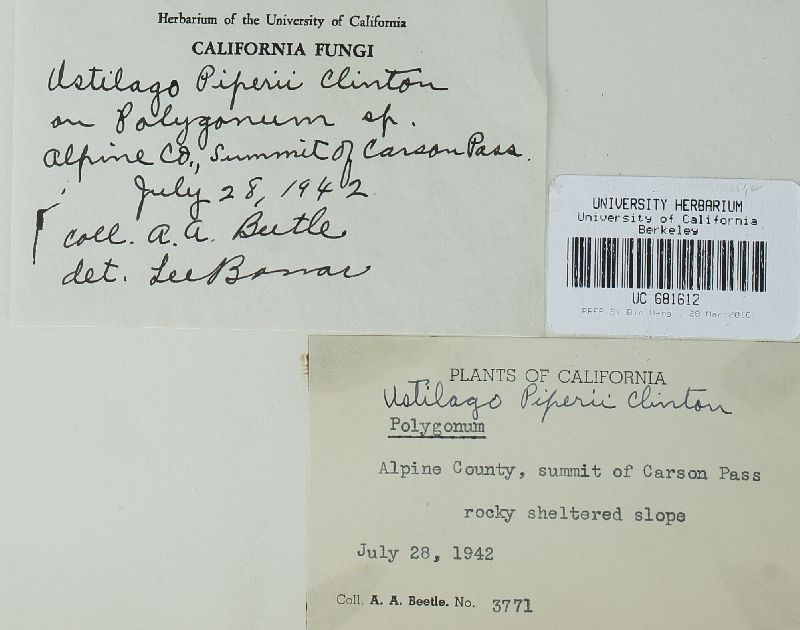 Herbarium of the University of California
CALIFORNIA FUNGI
Ustilago Piperii Clinton
on Polygonum sp.
Alpine Co., Summit of Carson Pass.
July 28, 1942
coll. A. A. Beetle
det. Lee Bonar
UNIVERSITY HERBARIUM
University of California
Berkeley
UC 681612
PLANTS OF CALIFORNIA
Ustilago Piperii Clinton
Polygonum
Alpine County, summit of Carson Pass
rocky sheltered slope
July 28, 1942
Coll. A. A. Beetle. No. 3771